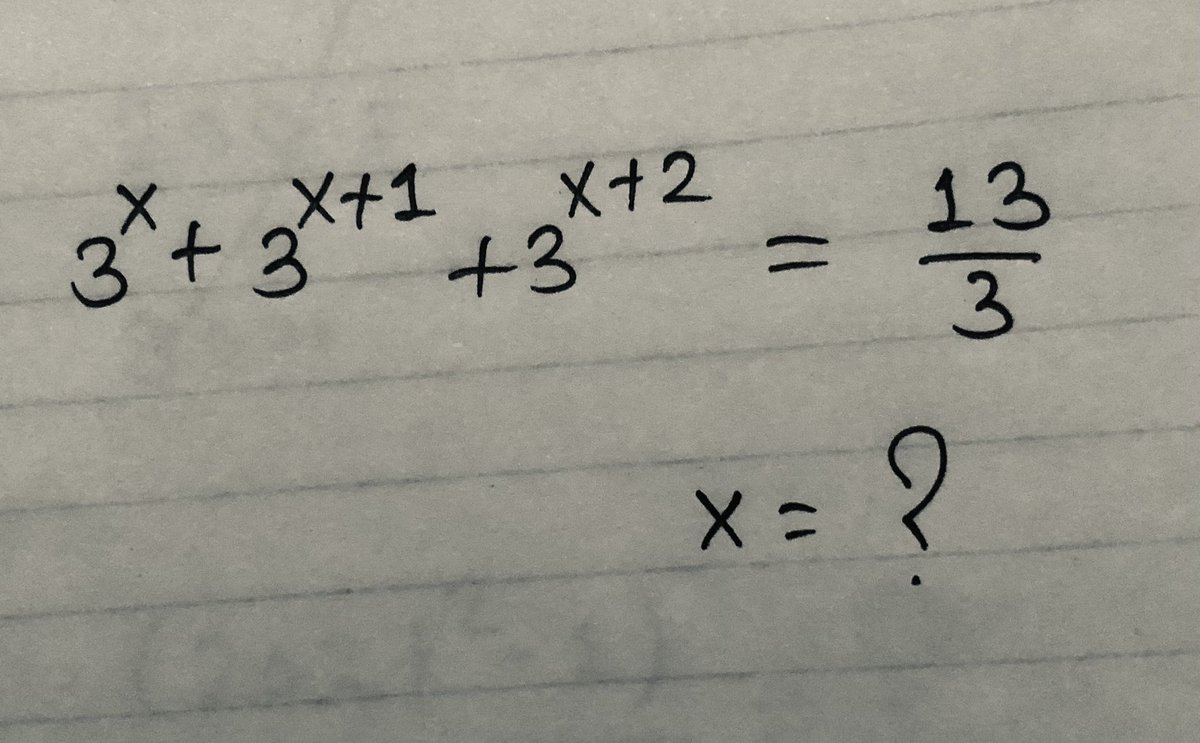 3^x + 3^{x+1} + 3^{x+2} = 13/3
x = ?